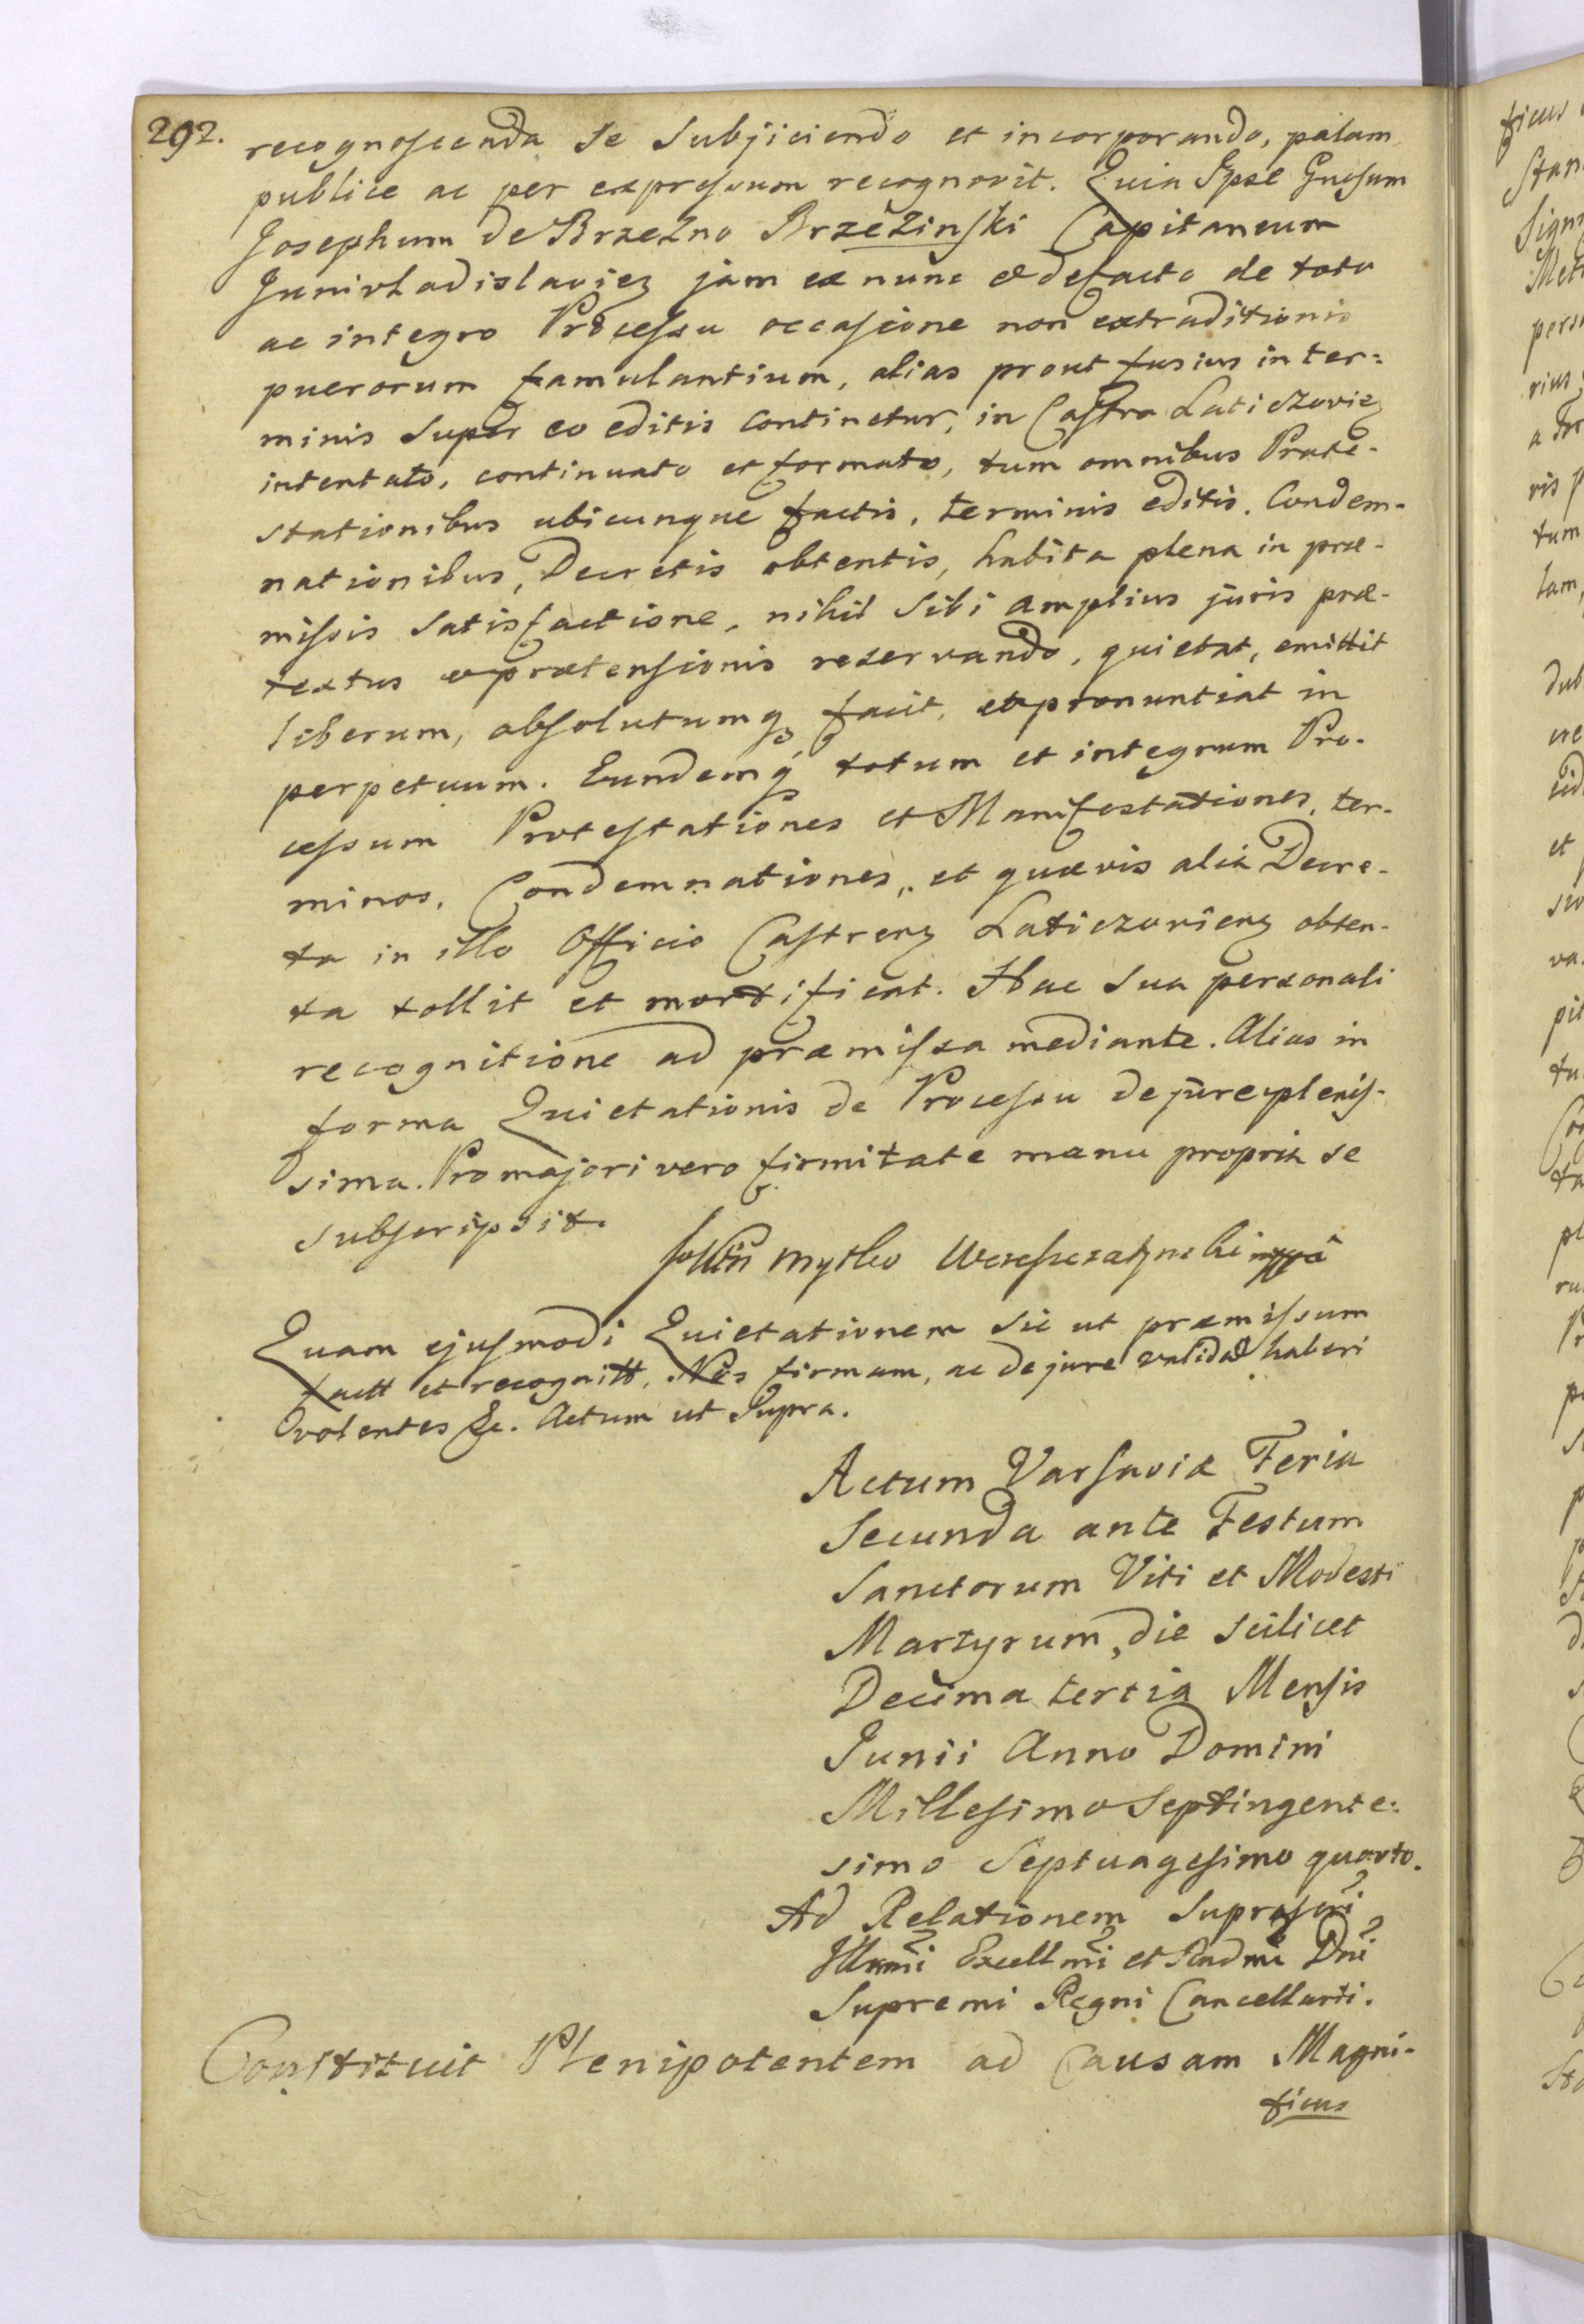 292.
recognoscenda se subjiciendo et incorporando, palam
publice ac per expressum recognovit. Quia Ipse Gnosum
Josephum de Brzezno Brzezinski Capitaneum
Junivladislaviez jam ex nunc & defacto de toto
ac integro Processu occasione non extraditionis
puerorum famulantium, alias prout fusius in ter:
minis super eo editis continetur, in Castro Laticzoviez
intentato, continuato et formato, tum omnibus Prote-
stationibus ubicunque factis, terminis editis, Condem-
nationibus, Decretis obtentis, habita plena in præ-
missis satisfactione, nihil sibi amplius juris præ-
textus & prætensionis reservando, quietat, emittit
liberum, absolutumq facit, et pronuntiat in
perpetuum. Eundemq totum et integrum Pro-
cessum Protestationes et Manifestationes, ter-
minos, Condemnationes, et quævis alia Decre-
ta in illo Officio Castrenz Laticzovienz obten-
ta tollit et mortificat. Hac sua personali
recognitione ad præmissa mediante. Alias in
forma Quietationis de Processu de jure plenis-
sima. Pro majori vero firmitate manu propria se
subscripsit.
Mytko mppa
Quam ejusmodi Quietationem sic ut præmissum
factt et recognitt, Nos firmam, ac de jure validã haberi
volentes &c. Actum ut Supra.
Actum Varsaviæ Feria
Secunda ante Festum
Sanctorum Viti et Modesti
Martyrum, die scilicet
Decima tertia Mensis
Junii Anno Domini
Millesimo Septingente:
simo Septuagesimo quarto.
Ad Relationem Suprascri
Illmi Excellmi et Rndmi Dni
Supremi Regni Cancellarii.
Constituit Plenipotentem ad Causam Magni-
ficus